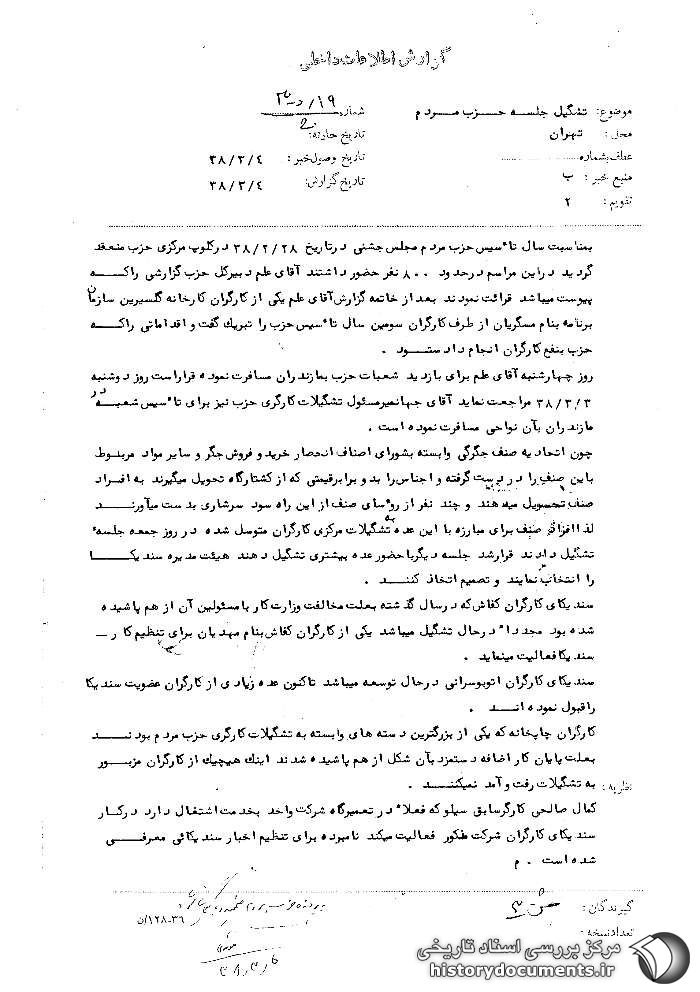 گزارش اطلاعات داخلی
موضوع: تشکیل جلسه حزب مردم
شماره
محل: تهران
تاریخ حادثه:
عطف بشماره
تاریخ وصول خبر: ۳۸/۳/۴
منبع خبر: ب
تاریخ گزارش: ۳۸/۳/۴
تقویم: ۲
بمناسبت سال تأسیس حزب مردم مجلس جشنی درتاریخ ۳۸/۲/۲۸ درکلوب مرکزی حزب منعقد
گردید دراین مراسم درحدود ۸۰۰ نفر حضور داشتند آقای علم دبیرکل حزب گزارشی راکه
پیوست میباشد قرائت نمودند بعد از خاتمه گزارش آقای علم یکی از کارگران کارخانه گلسیرین سازمان
برنامه بنام مسگریان از طرف کارگران سومین سال تأسیس حزب را تبریک گفت و اقداماتی راکه
حزب بنفع کارگران انجام داد ستود .
روز چهارشنبه آقای علم برای بازدید شعبات حزب بمازندران مسافرت نموده قراراست روز دوشنبه
۳۸/۳/۳ مراجعت نماید آقای جهانمیر مسئول تشکیلات کارگری حزب نیز برای تأسیس شعبه در
مازندران بآن نواحی مسافرت نموده است .
چون اتحادیه صنف جگرکی وابسته بشورای اصناف انحصار خرید و فروش جگر و سایر مواد مربوط
باین صنف را در دست گرفته و اجناس را بدو برابر قیمتی که از کشتارگاه تحویل میگیرند به افراد
صنف تحمیل میدهند و چند نفر از روسای صنف از این راه سود سرشاری بدست میآورند
لذا افراد صنف برای مبارزه با این عده به تشکیلات مرکزی کارگران متوسل شده در روز جمعه جلسه
تشکیل دادند قرارشد جلسه دیگر باحضور عده بیشتری تشکیل دهند هیئت مدیره سندیکا
را انتخاب نمایند و تصمیم اتخاذ کنند .
سندیکای کارگران کفاش که درسال گذشته بعلت مخالفت وزارت کار با مسئولین آن از هم پاشیده
شده بود مجدداً درحال تشکیل میباشد یکی از کارگران کفاش بنام مهدیان برای تنظیم کار
سندیکا فعالیت مینماید .
سندیکای کارگران اتوبوسرانی درحال توسعه میباشد تاکنون عده زیادی از کارگران عضویت سندیکا
را قبول نموده اند .
کارگران چاپخانه که یکی از بزرگترین دسته های وابسته به تشکیلات کارگری حزب مردم بودند
بعلت پایان کار اضافه دستمزد بآن شکل از هم پاشیده شدند اینک هیچیک از کارگران مزبور
نظریه: به تشکیلات رفت و آمد نمیکنند .
کمال صالحی کارگر سابق سیلو که فعلاً در تعمیرگاه شرکت واحد بخدمت اشتغال دارد درکار
سندیکای کارگران شرکت مذکور فعالیت میکند نامبرده برای تنظیم اخبار سندیکائی معرفی
شده است . م
گیرندگان:
تعداد نسخه:
۱۲۸-۳۶/ن
۳۸/۳/۶
مرکز بررسی اسناد تاریخی
historydocuments.ir